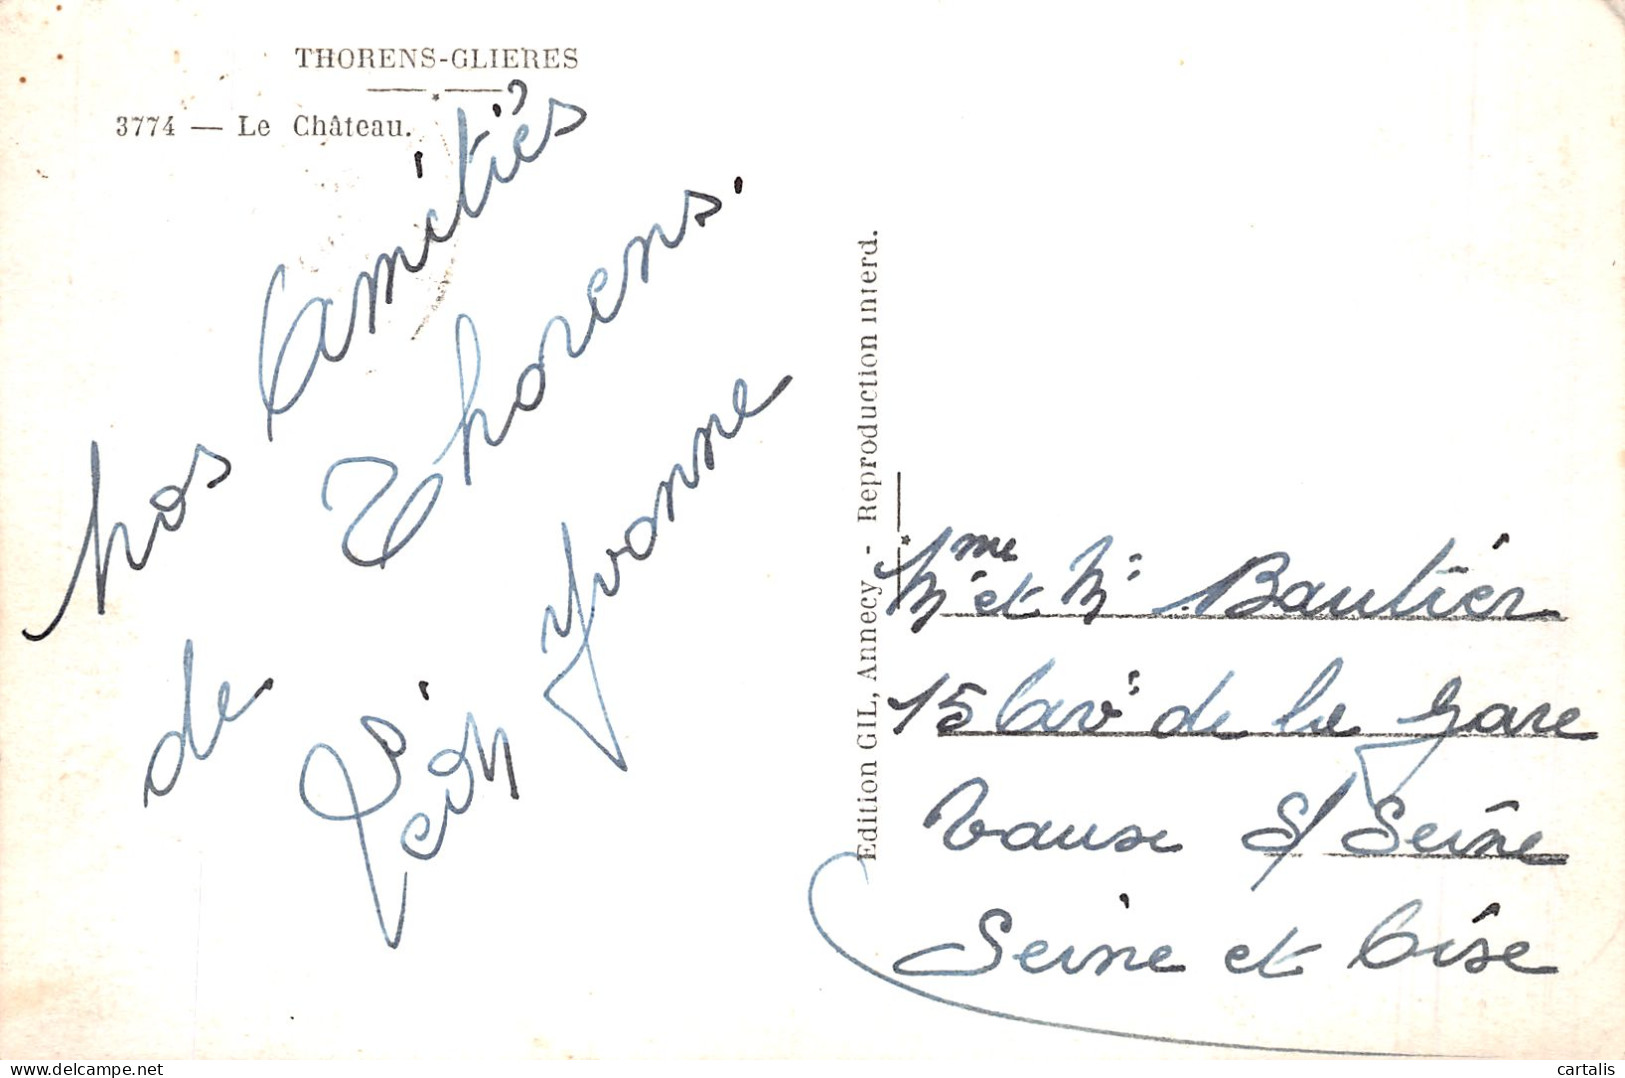 THORENS-GLIERES
3774 — Le Château.
nos Amitiés
de Thorens.
Léon Yvonne
Edition GIL, Annecy - Reproduction interd.
Mme et Mr Bautier
15 Av: de la gare
Vaux S/ Seine
Seine et Oise
cartalis
delcampe.net